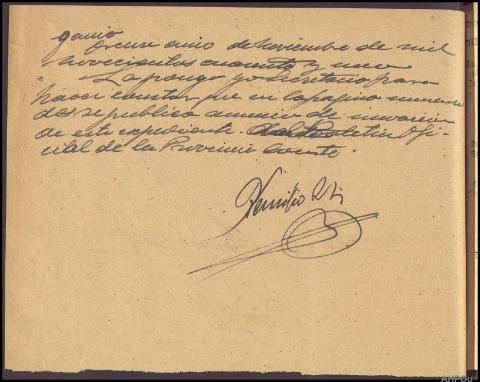 Orense cinco de Noviembre de mil
novecientos cuarenta y uno
La pongo yo Secretario para
hacer constar que en la pagina numero
dos se publica anuncio de incoacion
de este expediente. Boletin Ofi-
cial de la Provincia. Cuento.
AHPOu